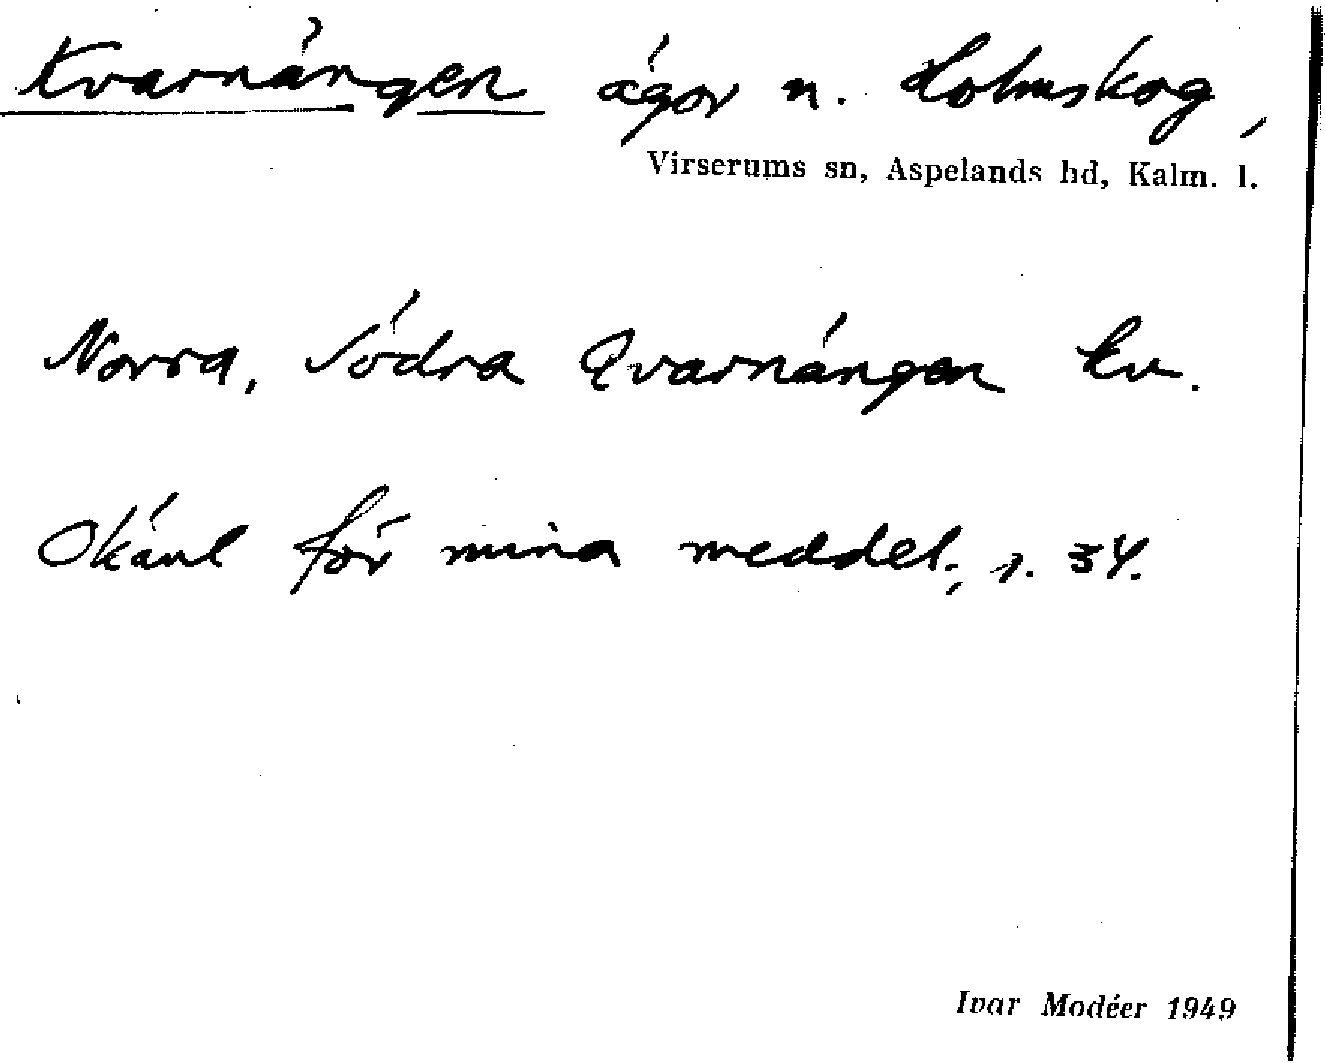 Kvarnängen ägor n. Holmskog,
Virserums sn, Aspelands hd, Kalm. l.
Norra, Södra Qvarnängen kv.
Okänt för mina meddel., s. 34.
Ivar Modéer 1949